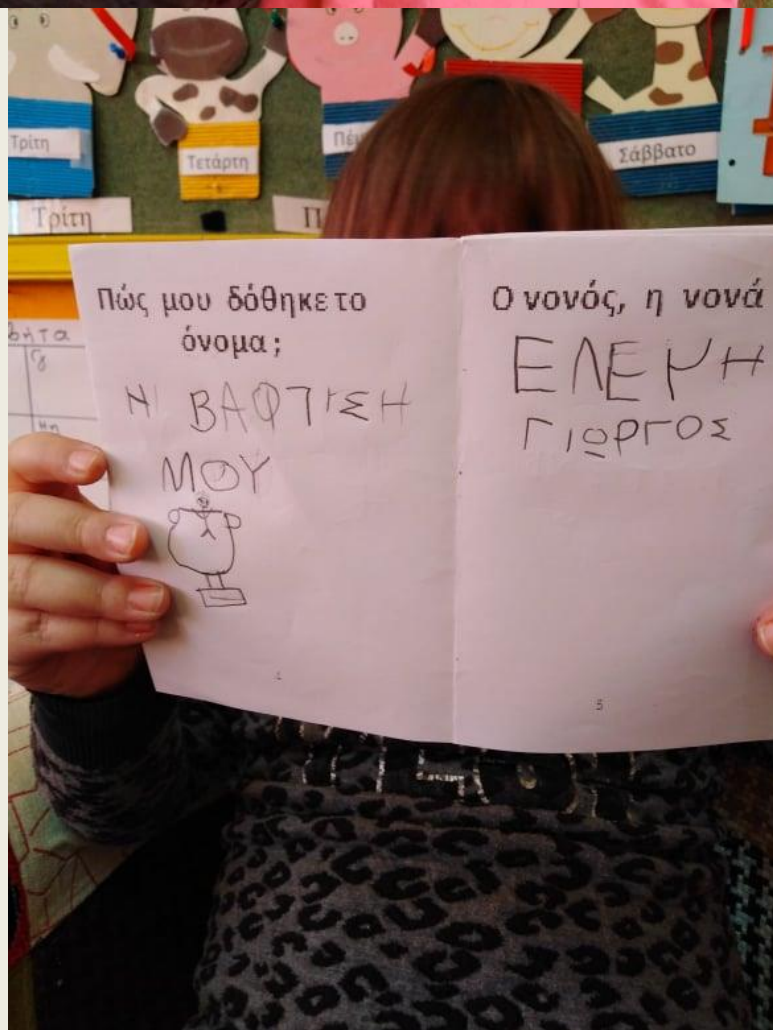 Τρίτη
Τετάρτη
Σάββατο
Τρίτη
Πώς μου δόθηκε το
όνομα;
Η ΒΑΦΤΙΣΗ
ΜΟΥ
4
Ο νονός, η νονά
ΓΙΩΡΓΟΣ
5